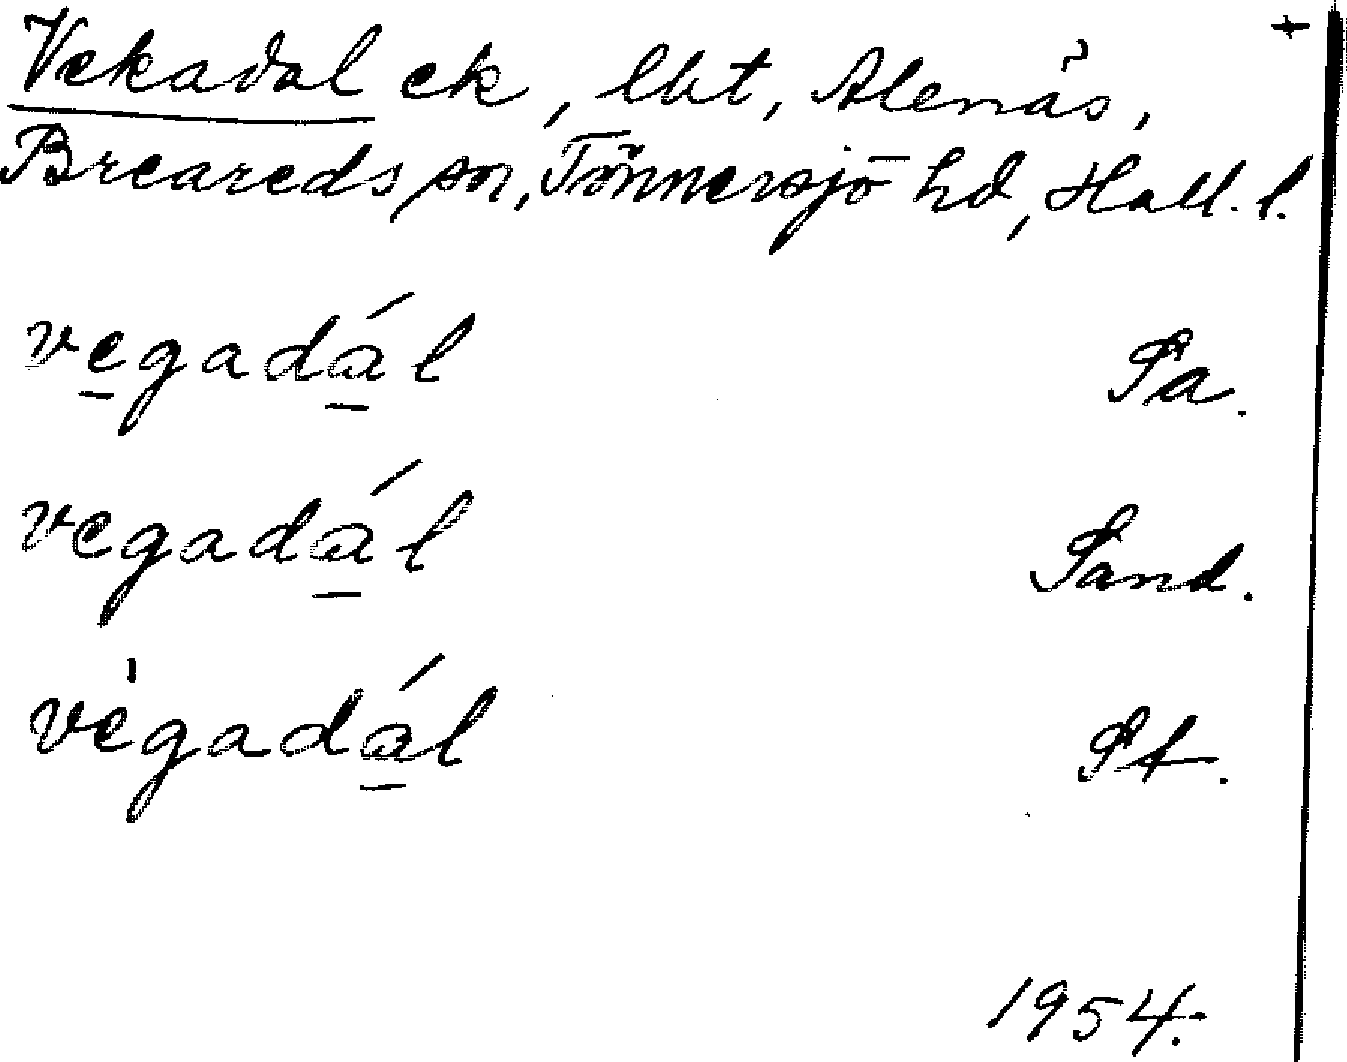 +
Vekadal ek, lht, Alenäs,
Breareds sn, Tönnersjö hd, Hall. l.
vegadál Sa.
vegadál Sand.
vègadál St.
1954.